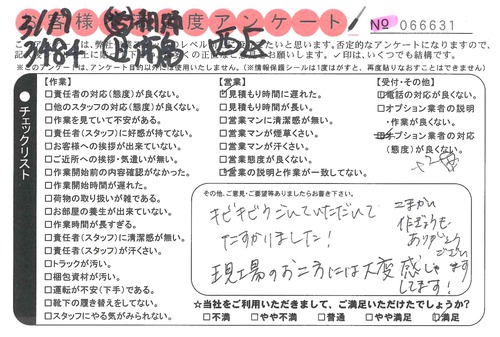 お客様満足度アンケート
№ 066631
3/19
3484
西長
※このアンケートは、アンケート目的以外に使用いたしません。(※情報保護シールは1度はがすと、再度貼りなおすことはできません)
チェックリスト
【作業】
□責任者の対応(態度)が良くない。
□他のスタッフの対応(態度)が良くない。
□作業を見ていて不安がある。
□責任者(スタッフ)に好感が持てない。
□お客様への挨拶が出来ていない。
□ご近所への挨拶・気遣いが無い。
□作業開始前の内容確認がなかった。
□作業開始時間が遅れた。
□荷物の取り扱いが雑である。
□お部屋の養生が出来ていない。
□作業時間が長すぎる。
□責任者(スタッフ)に清潔感が無い。
□責任者(スタッフ)が汗くさい。
□トラックが汚い。
□梱包資材が汚い。
□運転が不安(下手)である。
□靴下の履き替えをしてない。
□スタッフにやる気がみられない。
【営業】
□見積もり時間に遅れた。
□見積もり時間が長い。
□営業マンに清潔感が無い。
□営業マンが煙草くさい。
□営業マンが汗くさい。
□営業態度が良くない。
□営業の説明と作業が一致してない。
【受付・その他】
□電話の対応が良くない。
□オプション業者の説明
・作業が良くない。
□オプション業者の対応
(態度)が良くない。
その他、ご意見・ご要望等ありましたらお書き下さい。
キビキビうごいていただいて
たすかりました!
こまかい
作ぎょうも
ありがとう
ござい
ます
現場のお二方には大変感しゃ
してます!
☆当社をご利用いただきまして、ご満足いただけたでしょうか?
□不満 □やや不満 □普通 □やや満足 □満足